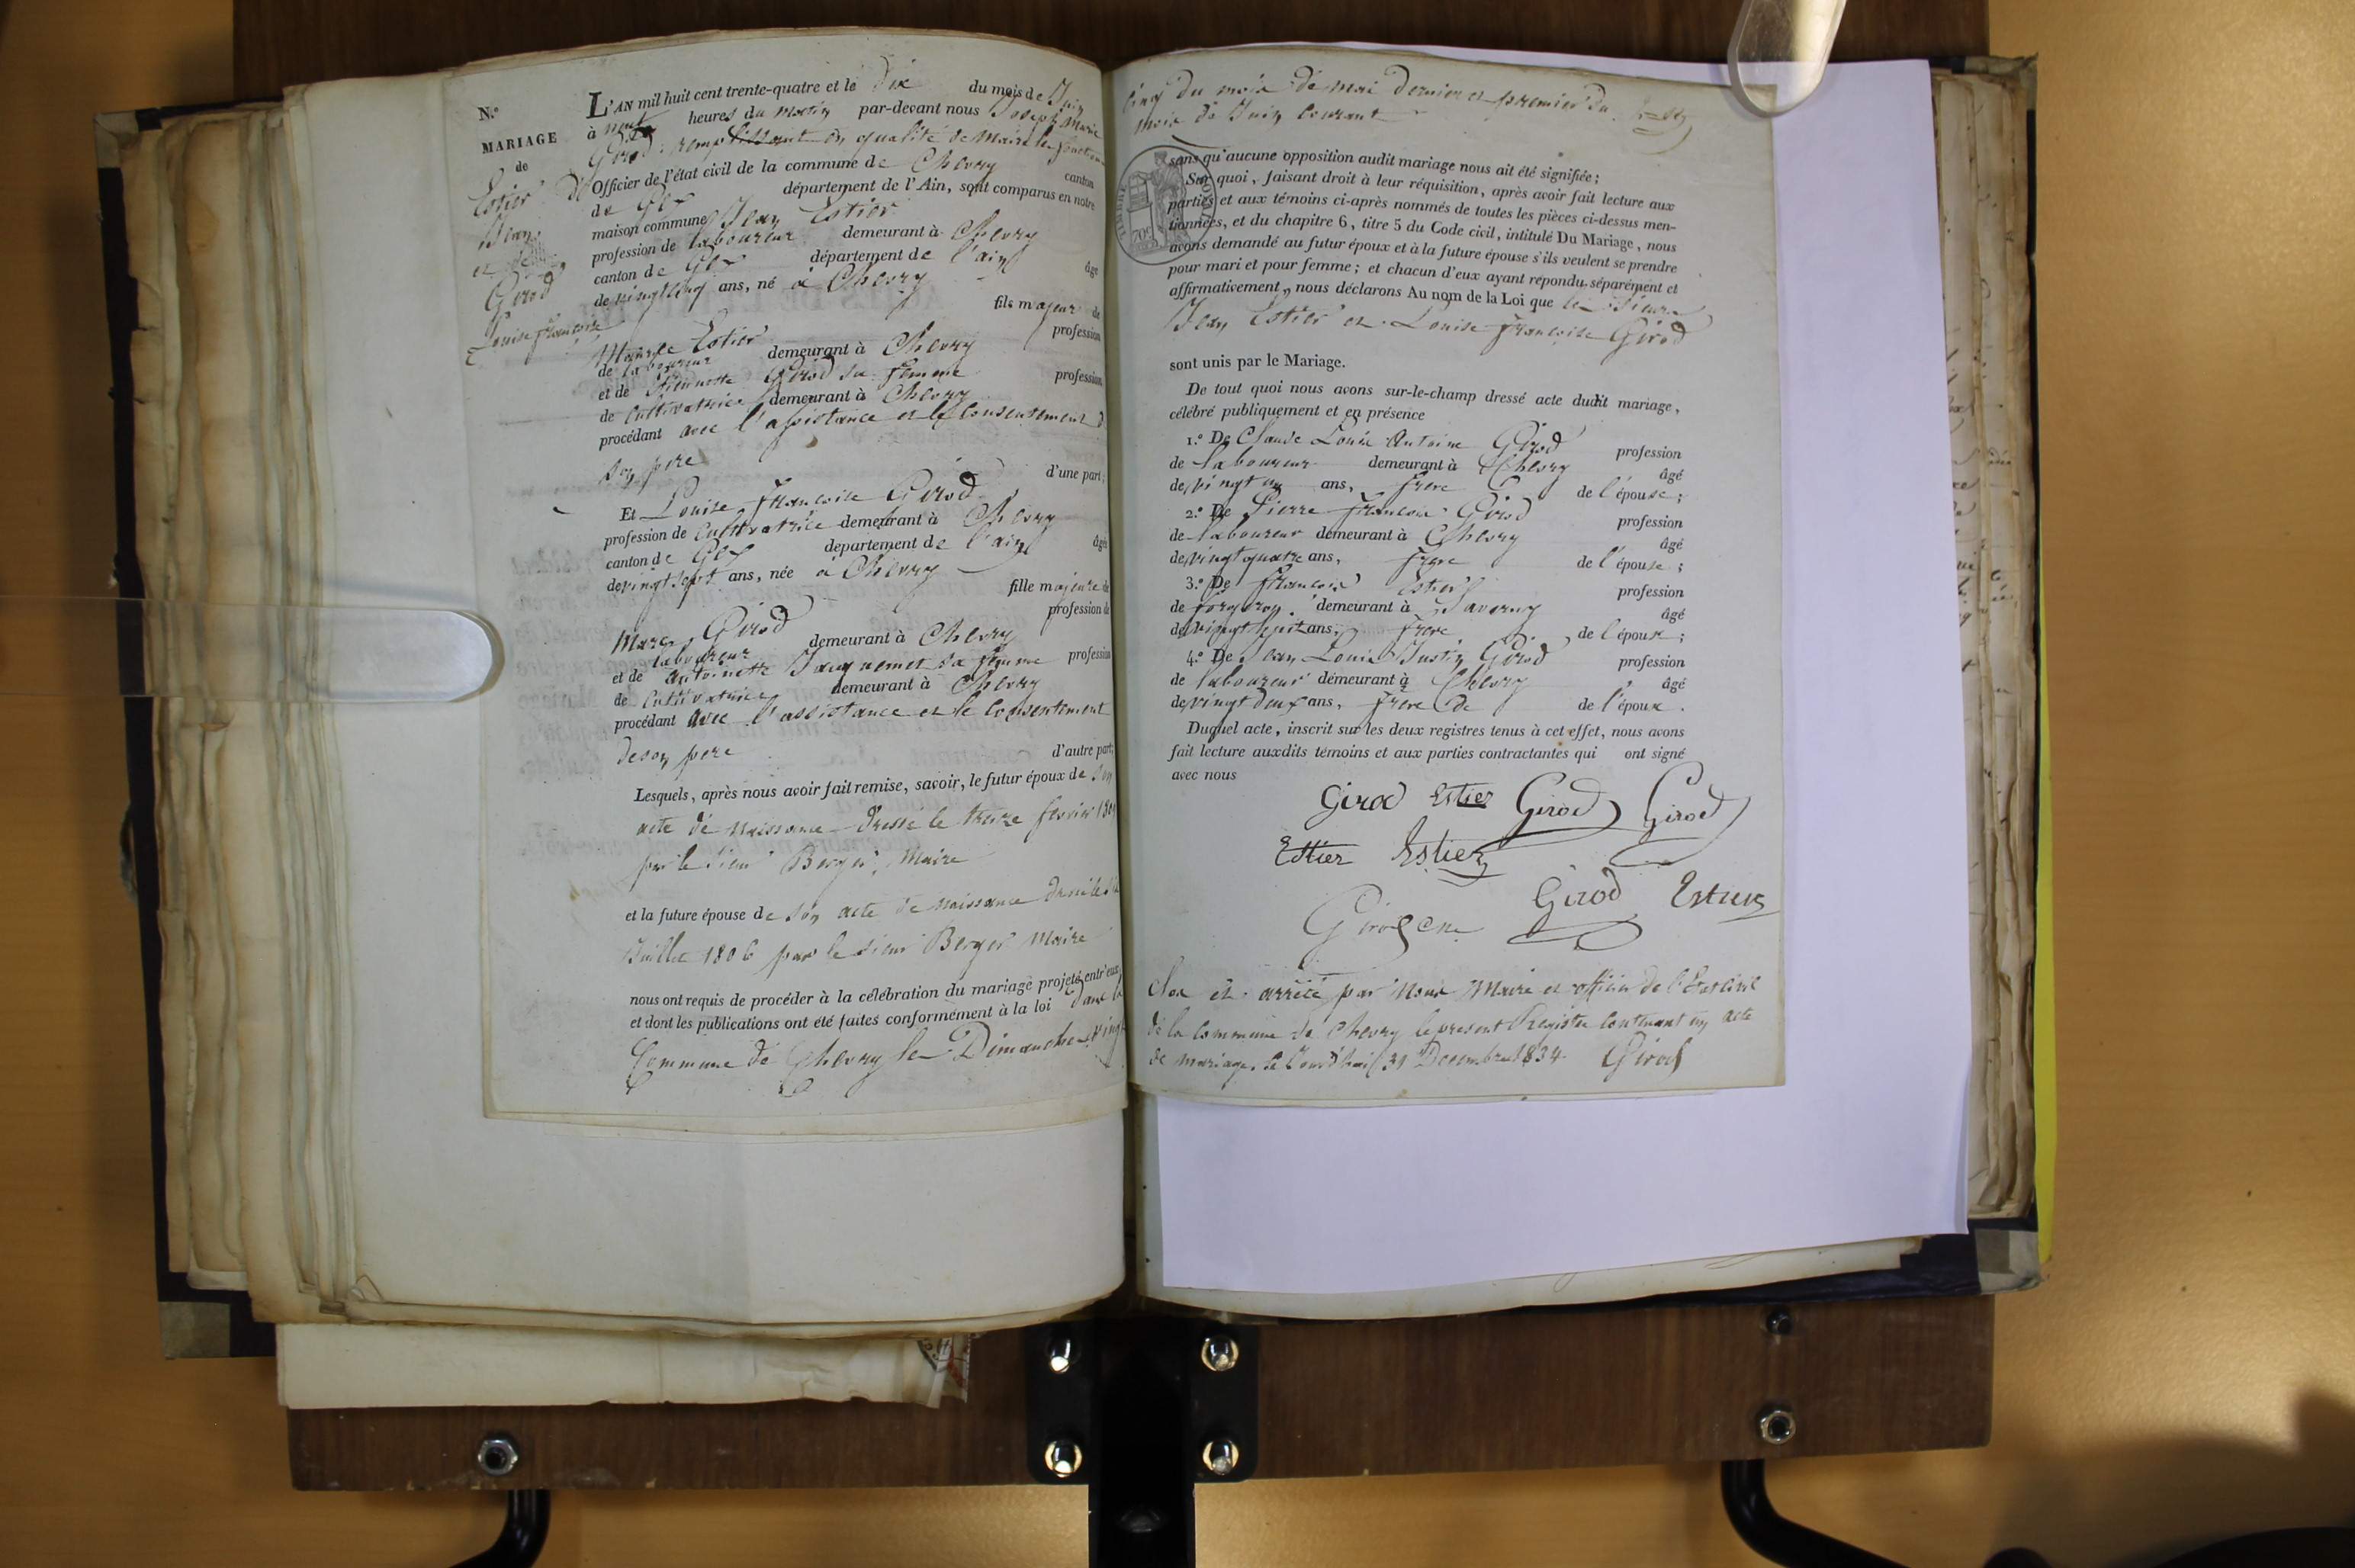 N.o
MARIAGE
de
Estier
Jean
et de
Girod
Louise françoise
L'AN mil huit cent trente-quatre et le Dix du mois de Juin
à neuf heures du matin par-devant nous Joseph Marie
Girod remplissant en qualité de Maire les fonctions
d'Officier de l'état civil de la commune de Chevry canton
de Gex département de l'Ain, sont comparus en notre
maison commune Jean Estier
profession de laboureur demeurant à Chevry
canton de Gex département de l'ain âgé
de vingt cinq ans, né à Chevry
fils majeur de
Estier profession
de laboureur demeurant à Chevry
et de Girod sa femme profession
de Cultivatrice demeurant à Chevry
procédant avec l'assistance et le Consentement d
son pere
d'une part;
Et Louise françoise Girod
profession de Cultivatrice demeurant à Chevry
canton de Gex département de l'ain âgée
de vingt sept ans, née à Chevry
fille majeure de
Marc Girod profession de
laboureur demeurant à Chevry
et de antoinette Jacquemet sa femme profession
de Cultivatrice demeurant à Chevry
procédant avec l'assistance et le Consentement
de son pere d'autre part;
Lesquels, après nous avoir fait remise, savoir, le futur époux de son
acte de naissance dressé le treize fevrier
par le sieur Berger, Maire
et la future épouse de son acte de naissance
Juillet 1806 par le sieur Berger Maire
nous ont requis de procéder à la célébration du mariage projeté entr'eux
et dont les publications ont été faites conformément à la loi dans la
Commune de Chevry le Dimanche vingt
Cinq du mois de mai dernier et premier du
mois de Juin Courant
TIMBRE ROYAL
70c
sans qu'aucune opposition audit mariage nous ait été signifiée;
Sur quoi, faisant droit à leur réquisition, après avoir fait lecture aux
parties et aux témoins ci-après nommés de toutes les pièces ci-dessus men-
tionnées, et du chapitre 6, titre 5 du Code civil, intitulé Du Mariage, nous
avons demandé au futur époux et à la future épouse s'ils veulent se prendre
pour mari et pour femme; et chacun d'eux ayant répondu séparément et
affirmativement, nous déclarons Au nom de la Loi que le Sieur
Jean Estier et Louise françoise Girod
sont unis par le Mariage.
De tout quoi nous avons sur-le-champ dressé acte dudit mariage,
célébré publiquement et en présence
1.o De Claude Louis Antoine Girod profession
de laboureur demeurant à Chevry âgé
de vingt un ans, frere de l'épouse;
2.o De Pierre françois Girod profession
de laboureur demeurant à Chevry âgé
de vingt quatre ans, frere de l'épouse;
3.o De françois Estier profession
de forgeron demeurant à âgé
de vingt huit ans, frere de l'époux;
4.o De Jean Louis Justin Girod profession
de laboureur demeurant à Chevry âgé
de vingt deux ans, frere de de l'époux.
Duquel acte, inscrit sur les deux registres tenus à cet effet, nous avons
fait lecture auxdits témoins et aux parties contractantes qui ont signé
avec nous
Girod Estier Girod Girod
Estier Estier
Girod Estier
Clos et arrêté par Nous Maire et officier de l'Etat civil
de la Commune de Chevry le present Registre Contenant un acte
de mariage, ce Jourd'hui 31 Decembre 1834 Girod